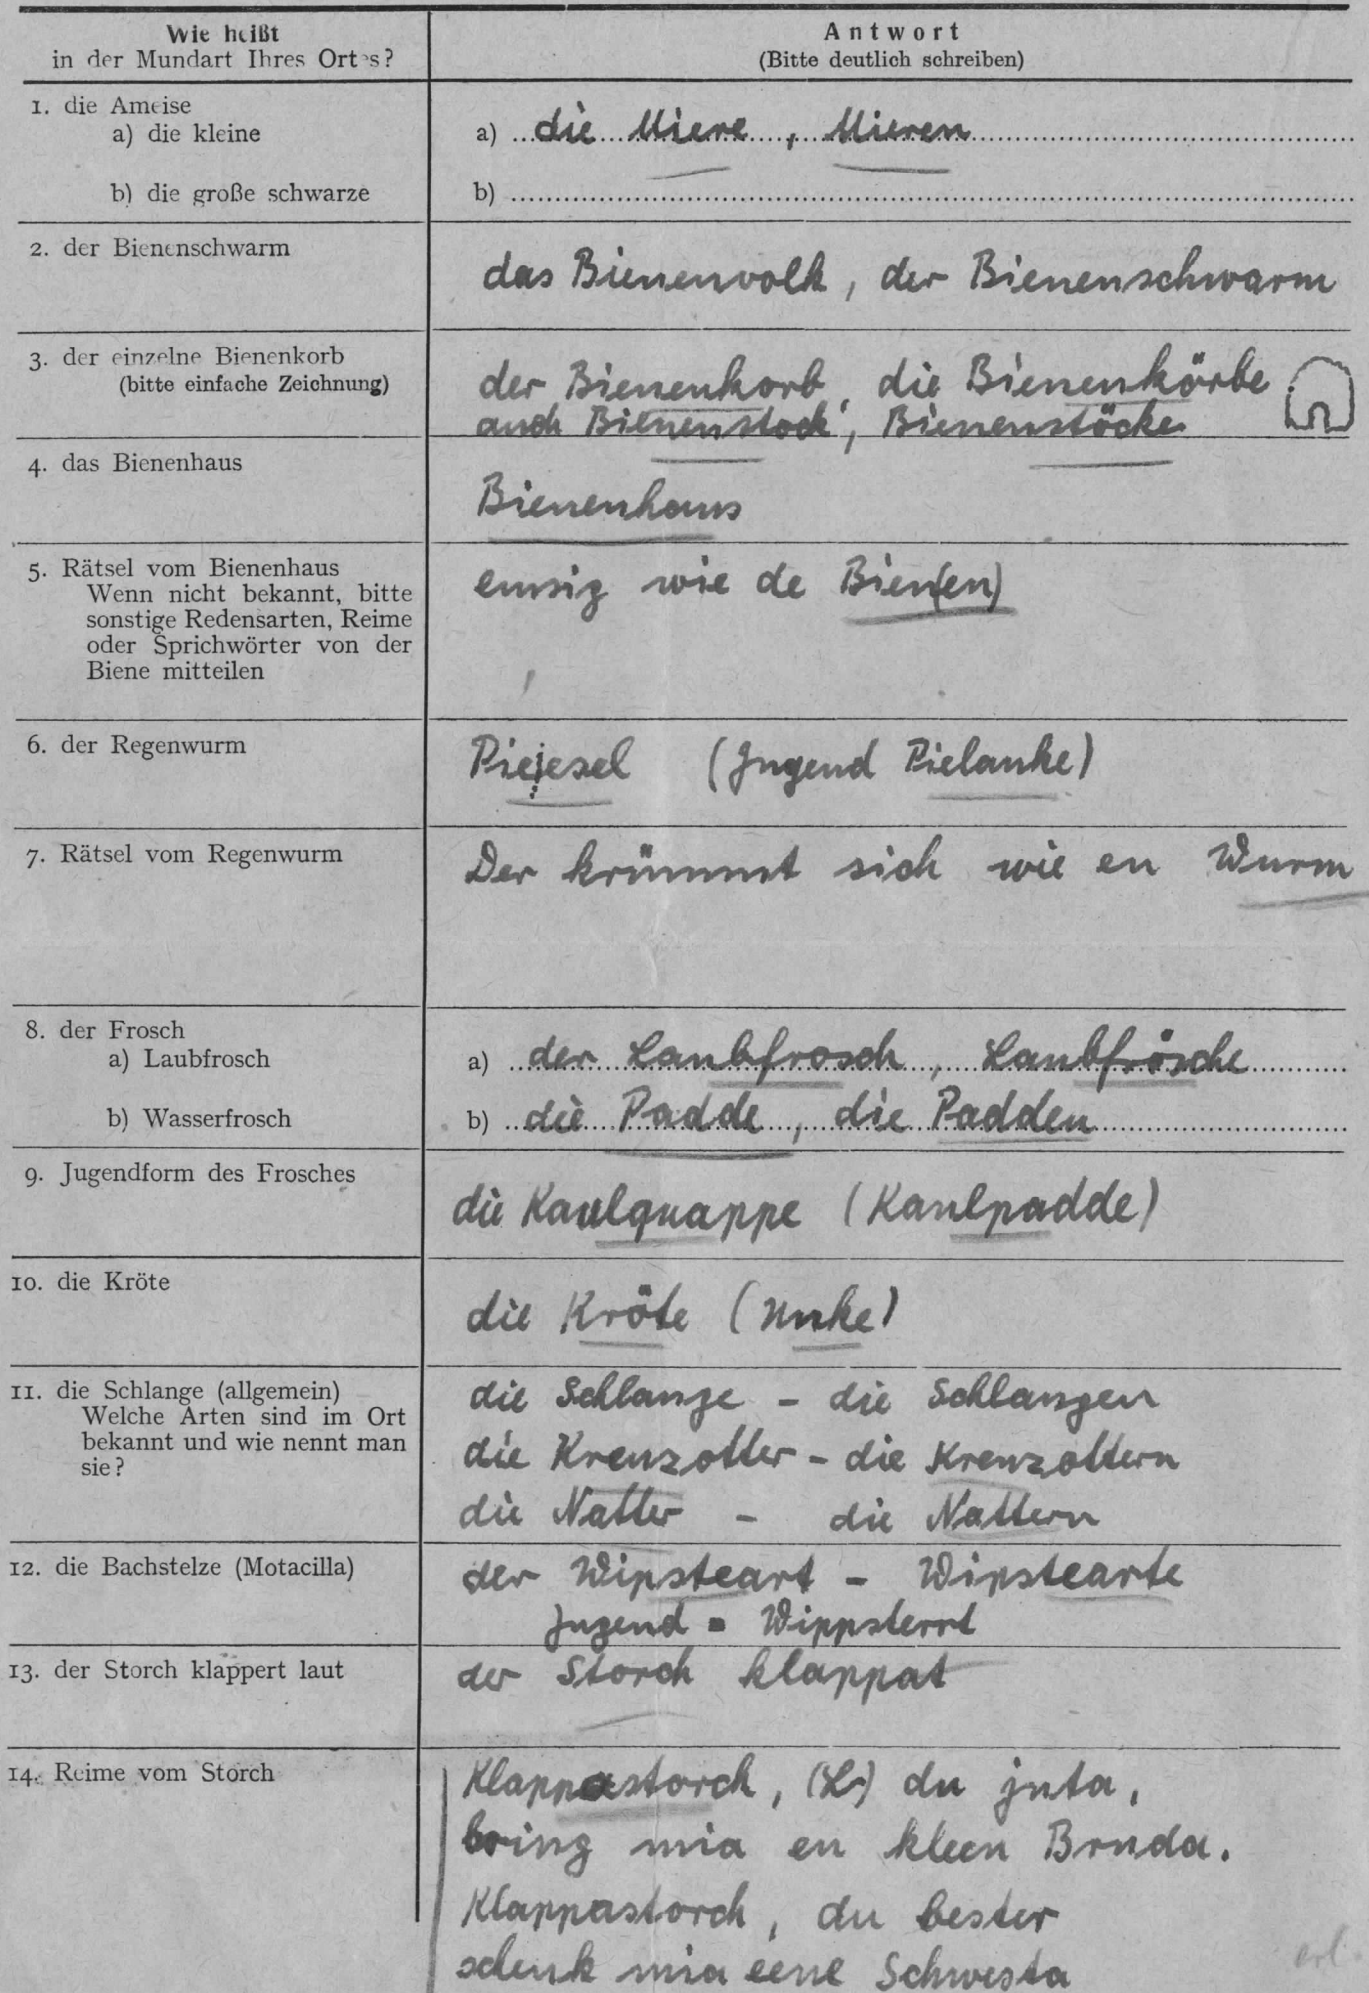 Wie heißt
in der Mundart Ihres Ortes?
Antwort
(Bitte deutlich schreiben)
1. die Ameise
a) die kleine
a) die Miere, Mieren
b) die große schwarze
b)
2. der Bienenschwarm
das Bienenvolk, der Bienenschwarm
3. der einzelne Bienenkorb
(bitte einfache Zeichnung)
der Bienenkorb, die Bienenkörbe
auch Bienenstock, Bienenstöcke
4. das Bienenhaus
Bienenhaus
5. Rätsel vom Bienenhaus
Wenn nicht bekannt, bitte
sonstige Redensarten, Reime
oder Sprichwörter von der
Biene mitteilen
emsig wie de Bien(en)
6. der Regenwurm
Piejesel (Jugend Pielanke)
7. Rätsel vom Regenwurm
Der krümmt sich wie en Wurm
8. der Frosch
a) Laubfrosch
a) der Laubfrosch, Laubfrösche
b) Wasserfrosch
b) die Padde, die Padden
9. Jugendform des Frosches
die Kaulquappe (Kaulpadde)
10. die Kröte
die Kröte (Unke)
11. die Schlange (allgemein)
Welche Arten sind im Ort
bekannt und wie nennt man
sie?
die Schlange - die Schlangen
die Kreuzotter - die Kreuzottern
die Natter - die Nattern
12. die Bachstelze (Motacilla)
der Wipsteart - Wipstearte
Jugend = Wippsterrt
13. der Storch klappert laut
der Storch klappat
14. Reime vom Storch
Klappastorch, du juta,
bring mia en kleen Bruda.
Klappastorch, du bester
schenk mia eene Schwesta